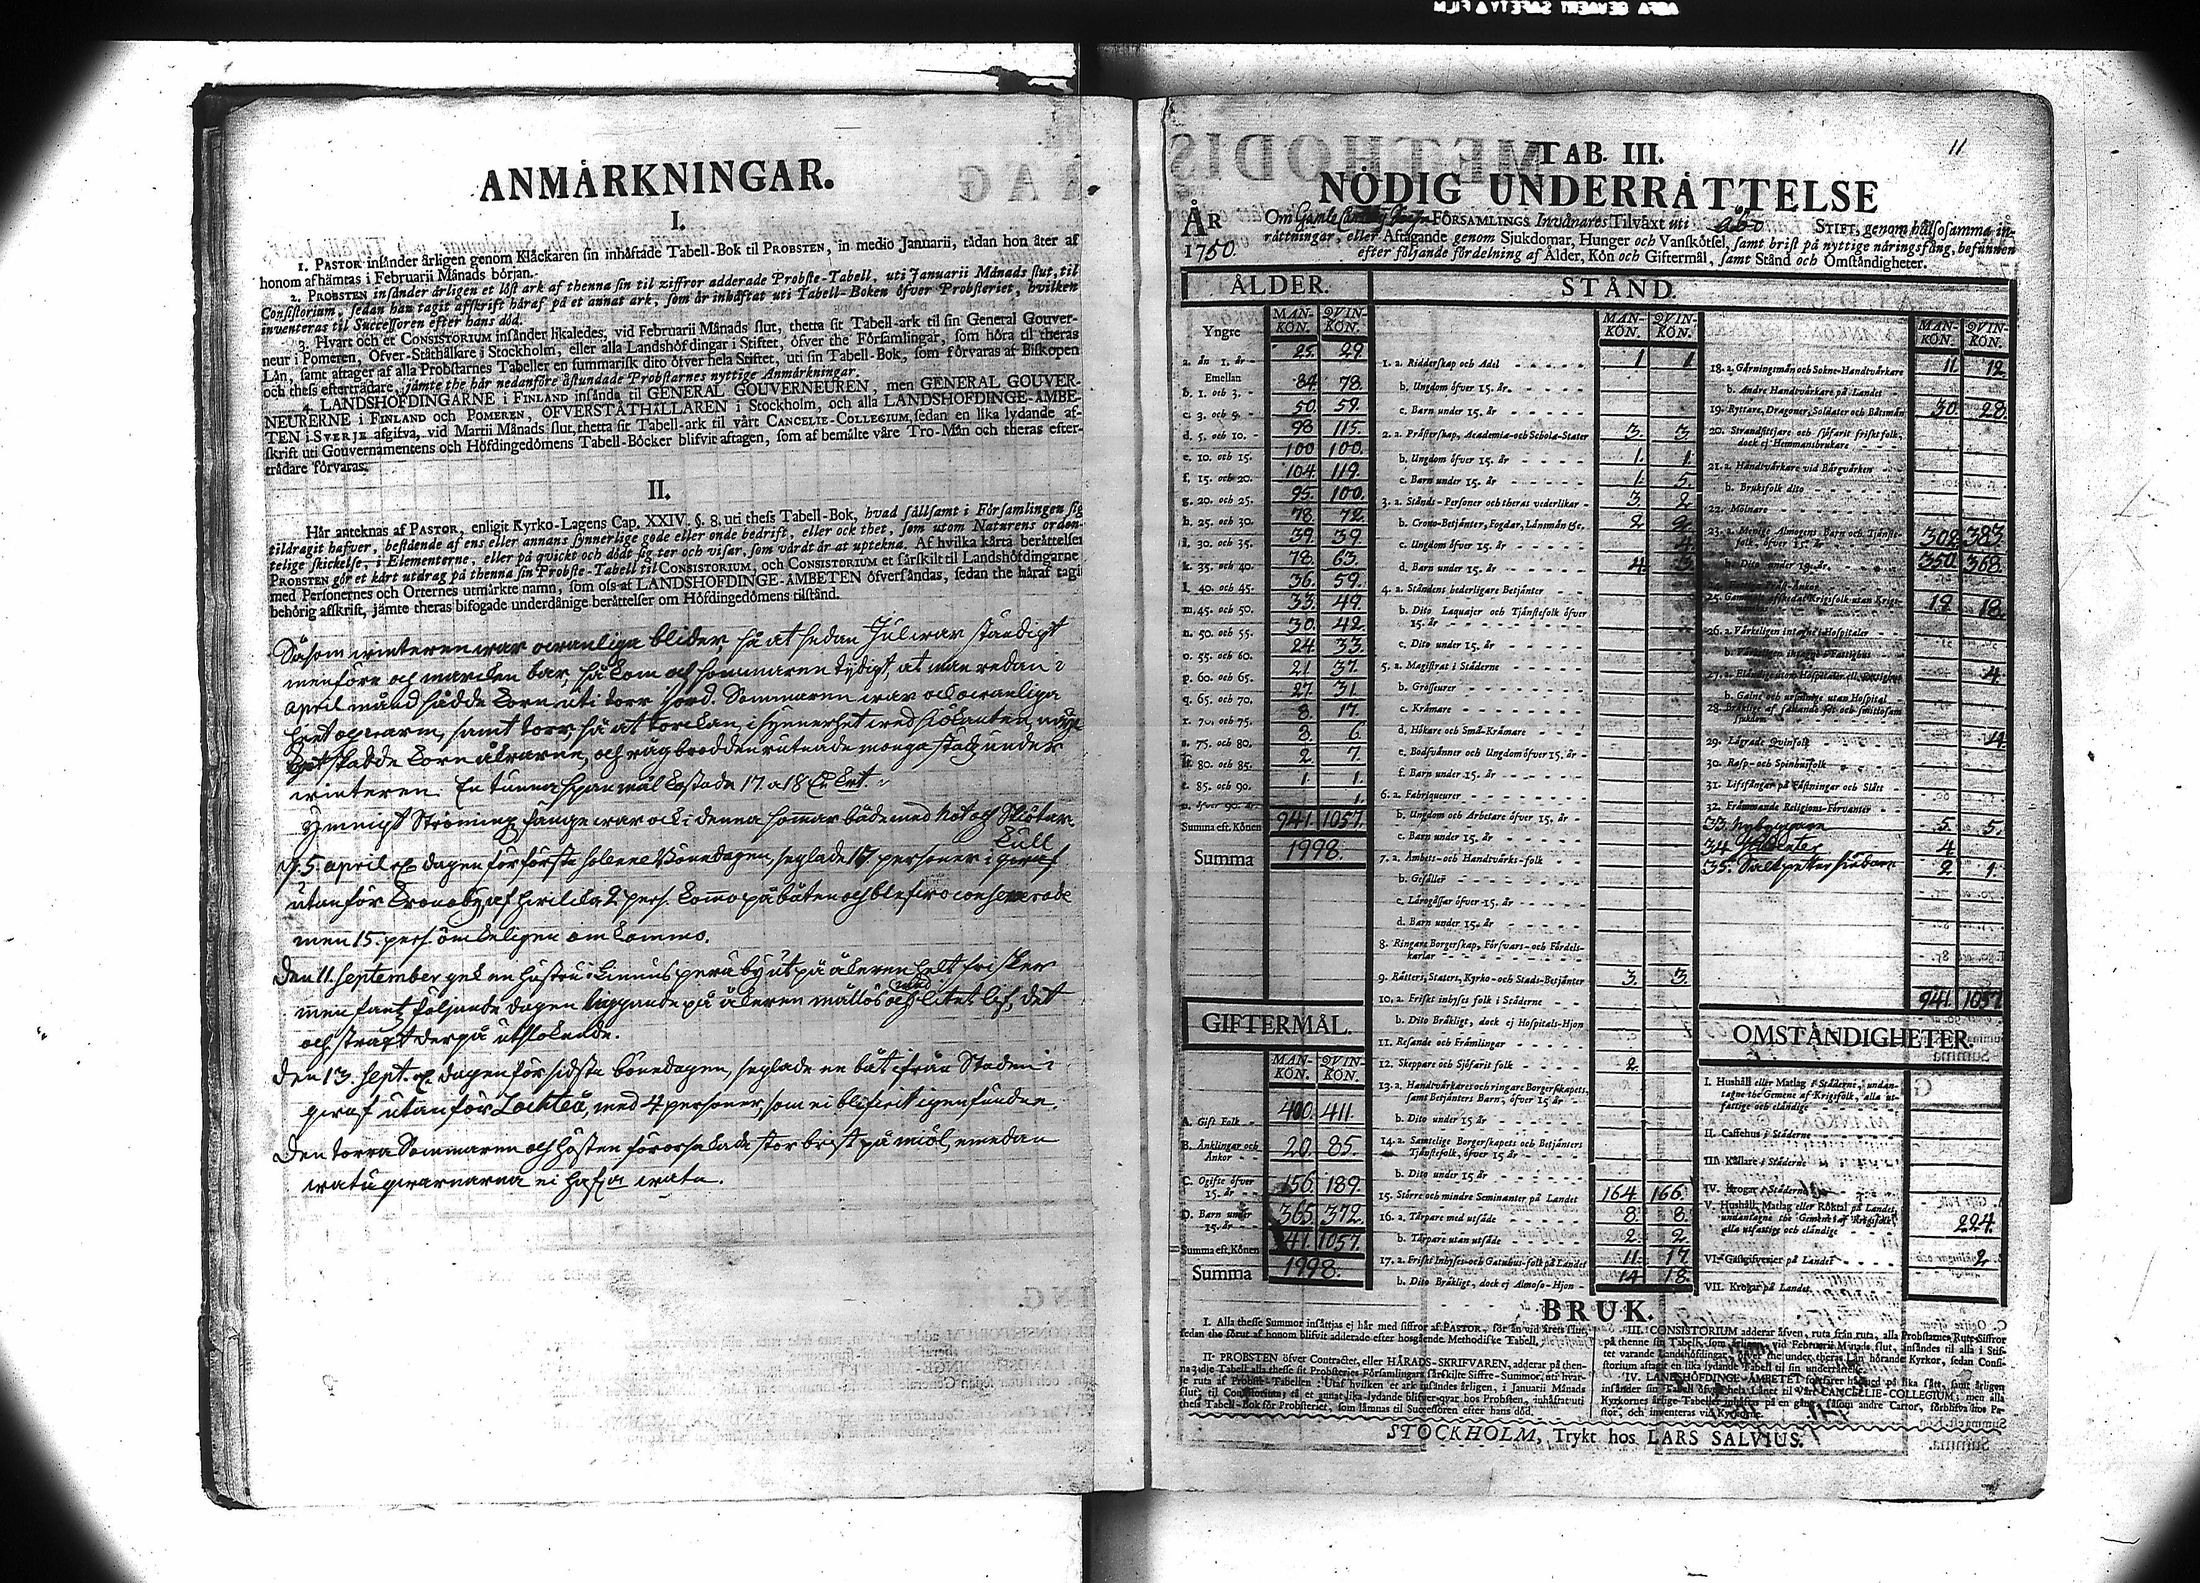 ANMÄRKNINGAR.
I.
1. PASTOR insänder årligen genom Klåckaren sin inhäftade Tabell-Bok til PROBSTEN, in medio Januarii, sådan hon åter af
honom afhämtas i Februarii Månads början.
2. PROBSTEN insänder årligen et löst ark af thenna sin til ziffror adderade Probste-Tabell, uti Januarii Månads slut, til
Consistorium, sedan han tagit affskrift häraf på et annat ark, som är inhäftat uti Tabell-Boken öfver Probsteriet, hvilken
inventeras til Successoren efter hans död.
3. Hvart och et CONSISTORIUM insänder likaledes, vid Februarii Månads slut, thetta sit Tabell-ark til sin General Gouver-
neur i Pomeren, Öfver-Ståthållare i Stockholm, eller alla Landshöfdingar i Stiftet, öfver the Församlingar, som höra til theras
Län, samt aftager af alla Probstarnes Tabeller en summarisk dito öfver hela Stiftet, uti sin Tabell-Bok, som förvaras af Biskopen
och thess efterträdare, jämte the här nedanföre åstundade Probstarnes nyttige Anmärkningar.
4. LANDSHÖFDINGARNE i FINLAND insända til GENERAL GOUVERNEUREN, men GENERAL GOUVER-
NEURERNE i FINLAND och POMEREN, ÖFVERSTÅTHÅLLAREN i Stockholm, och alla LANDSHÖFDINGE-ÄMBE-
TEN i SVERJE afgifva, vid Martii Månads slut, thetta sit Tabell-ark til vårt CANCELIE-COLLEGIUM, sedan en lika lydande af-
skrift uti Gouvernamentens och Höfdingedömens Tabell-Böcker blifvit aftagen, som af bemälte våre Tro-Män och theras efter-
trädare förvaras.
II.
Här anteknas af PASTOR, enligit Kyrko-Lagens Cap. XXIV. §. 8. uti thess Tabell-Bok, hvad sällsamt i Församlingen sig
tildragit hafver, bestående af ens eller annans synnerlige gode eller onde bedrift, eller ock thet, som utom Naturens orden-
telige skickelse, i Elementerne, eller på qvickt och dödt sig ter och visar, som värdt är at uptekna. Af hvilka korta berättelser
PROBSTEN gör et kårt utdrag på thenna sin Probste-Tabell til CONSISTORIUM, och CONSISTORIUM et särskilt til Landshöfdingarne
med Personernes och Orternes utmärkte namn, som oss af LANDSHÖFDINGE-ÄMBETEN öfversändas, sedan the häraf tagit
behörig afskrift, jämte theras bifogade underdånige berättelser om Höfdingedömens tilstånd.
Såsom winteren war owanliga blider, så at sedan Jul war ständigt
menföre och marcken bar, så kom och sommaren tydigt, at man redan i
april månad sådde korn uti torr jord. Sommaren war ock owanliga
het och warm, samt torr, så at torckan, i synnerhet wid siökanten
skadde korn åkrarne, och rågbrodden rutnade monga städz under
winteren. En tunna spanmål kostade 17. a 18
Ymnigt Strömings fänge war ock i denna sommar både med Not och Skötar.
d. 5 april dagen för första solenne Bönedagen, seglade 17 personer i qvaf
utanför Kronoby, af hvilcka 2 pers. komo på båten och blefwo conserverade
men 15. pers. ömckeligen omkommo.
Den 11. September gek en hustru i Linnusperä by ut på åkeren helt frisker
men fants följande dagen liggande på åkeren mållös och med litet lif, det
och straxt derpå utslocknade.
Den 13. Sept. dagen för sidsta bönedagen, seglade en båt ifrån Staden i
qvaf utanför Lochteå, med 4 personer, som ei blefwit igenfundne.
Den torra Sommaren och hösten förorsakade stor brist på miöl, emedan
watuqwarnarna ei hafwa watn.
11
TAB. III.
NÖDIG UNDERRÄTTELSE
ÅR 1750. Om Gamle Carleby FÖRSAMLINGS Invånares Tilväxt uti Åbo STIFT, genom hälsosamma in-
rättningar, eller Aftagande genom Sjukdomar, Hunger och Vanskötsel, samt brist på nyttige näringsfång, befunnen
efter följande fördelning af Ålder, Kön och Giftermål, samt Stånd och Omständigheter.
ÅLDER.
MAN-KÖN. QVIN-KÖN.
Yngre
a. än 1. år - 25. 29.
Emellan
b. 1. och 3. - 84. 78.
c. 3. och 5. - 50. 59.
d. 5. och 10. - 98 115.
e. 10. och 15. 100 100.
f. 15. och 20. 104. 119.
g. 20. och 25. 95. 100.
h. 25. och 30. 78. 72.
i. 30. och 35. 39. 39
k. 35. och 40. 78. 63.
l. 40. och 45. 36. 59.
m. 45. och 50. 33. 49.
n. 50. och 55. 30. 42.
o. 55. och 60. 24. 33.
p. 60. och 65. 21. 37.
q. 65. och 70. 27. 31.
r. 70. och 75. 8. 17.
s. 75. och 80. 3. 6.
80. och 85. 2. 7.
t. 85. och 90. 1. 1.
u. öfver 90. år 1.
Summa eft. Könen 941. 1057.
Summa 1998.
GIFTERMÅL.
MAN-KÖN. QVIN-KÖN.
A. Gift Folk - 400. 411.
B. Änklingar och Änkor - 20. 85.
C. Ogifte öfver 15. år - 156. 189.
D. Barn under 15. år - 365. 372.
Summa eft. Könen 941. 1057.
Summa 1998.
STÅND.
MAN-KÖN. QVIN-KÖN.
1. a. Ridderskap och Adel 1. 1
b. Ungdom öfver 15. år
c. Barn under 15. år
2. a. Prästerskap, Academiæ- och Scholæ-Stater 3. 3.
b. Ungdom öfver 15. år 1. 1.
c. Barn under 15. år 1. 5.
3. a. Stånds-Personer och theras vederlikar 3. 2.
b. Crono-Betjänter, Fogdar, Länsmän &c. 2 2.
c. Ungdom öfver 15. år 4.
d. Barn under 15. år 4. 3.
4. a. Ståndens hederligare Betjänter
b. Dito Laquajer och Tjänstefolk öfver 15. år
c. Dito under 15. år
5. a. Magistrat i Städerne
b. Grosseurer
c. Krämare
d. Hökare och Små-Krämare
e. Bodsvänner och Ungdom öfver 15. år
f. Barn under 15. år
6. a. Fabriqueurer
b. Ungdom och Arbetare öfver 15. år
c. Barn under 15. år
7. a. Ämbets- och Handtvärks-folk
b. Gesäller
c. Lärogåssar öfver 15. år
d. Barn under 15. år
8. Ringare Borgerskap, Försvars- och Fördels-karlar
9. Rätteri, Staters, Kyrko- och Stads-Betjänter 3. 3.
10. a. Friskt inhyses folk i Städerne
b. Dito Bräkligt, dock ej Hospitals-Hjon
11. Resande och Främlingar
12. Skeppare och Sjöfarit folk 2.
13. a. Handtvärkares och ringare Borgerskapets, samt Betjänters Barn, öfver 15 år
b. Dito under 15. år
14. a. Samtelige Borgerskapets och Betjänters Tjänstefolk, öfver 15 år
b. Dito under 15. år
15. Större och mindre Seminanter på Landet 164. 166.
16. a. Tårpare med utsäde 8. 8.
b. Tårpare utan utsäde 2. 2.
17. a. Friskt Inhyses- och Gatuhus-folk på Landet 11. 17.
b. Dito Bräkligt, dock ej Almoso-Hjon 14. 18.
MAN-KÖN. QVIN-KÖN.
18. a. Gärningsmän och Sokne-Handtvärkare 11. 12.
b. Andre Handtvärkare på Landet
19. Ryttare, Dragoner, Soldater och Båtsmän 30. 28.
20. Strandsittjare och sjöfarit friskt folk, dock ej Hemmansbrukare
21. a. Handtvärkare vid Bärgvärken
b. Bruksfolk dito
22. Mölnare
23. a. Menige Almogens Barn och Tjänste-folk, öfver 15. år 302 383
b. Dito under 15. år. 350. 368.
25. Gammalt afskedat Krigsfolk utan Krigs- 12. 18.
26. a. Värkeligen intagne i Hospitaler
b. Värkeligen intagne i Fattighus
27. a. Eländige utom Hospitaler ell. Fattighus 4.
b. Galne och ursinnige utan Hospital
28. Bräklige af fallande sot och smittosam sjukdom
29. Lägrade Qvinfolk 14.
30. Rasp- och Spinhusfolk
31. Lifsfångar på Fästningar och Slått
32. Främmande Religions-Förvanter
33. Nybyggare 5. 5.
34. 4.
35. Saltpetter siudare 2. 1.
941. 1057
OMSTÄNDIGHETER.
I. Hushåll eller Matlag i Städerne, undan-
tagne the Gemene af Krigsfolk, alla ut-
fattige och eländige
II. Caffehus i Städerne
III. Källare i Städerne
IV. Krogar i Städerne
V. Hushåll, Matlag eller Röktal på Landet, undantagne the Gemene af Krigsfolk, alla utfattige och eländige 224.
VI. Gästgifverier på Landet 2.
VII. Krogar på Landet
BRUK.
I. Alla thesse Summor insättjas ej här med siffror af PASTOR, för än vid årets slut,
sedan the förut af honom blifvit adderade efter hosgående Methodiske Tabell.
II. PROBSTEN öfver Contractet, eller HÄRADS-SKRIFVAREN, adderar på then-
na 3dje Tabell alla thesse sit Probsteries Församlingars särskilte Siffre-Summor, uti hvar-
je ruta af Probste-Tabellen. Utaf hvilken et ark insändes årligen, i Januarii Månads
slut, til Consistorium; så et annat lika lydande blifver qvar hos Probsten, inhäftat uti
thess Tabell-Bok för Probsteriet, som lämnas til Successoren efter hans död.
III. CONSISTORIUM adderar äfven, ruta från ruta, alla Probstarnes Rute-Siffror
på thenne sin Tabell, som årligen, vid Februarii Månads slut, insändes til alla i Stif-
tet varande Landshöfdingar, öfver the under theras Län hörande Kyrkor, sedan Consi-
storium aftagit en lika lydande Tabell til sin underrättelse.
IV. LANDSHÖFDINGE-ÄMBETET fortfarer härmed på lika sätt, samt årligen
insänder sin Tabell öfver hela Länet til Vårt CANCELIE-COLLEGIUM; men alla
Kyrkornes årlige Tabeller inhäftas på en gång, såsom andre Cartor, förblifva hos Pa-
stor, och inventeras vid Kyrkorne.
STOCKHOLM, Trykt hos LARS SALVIUS.